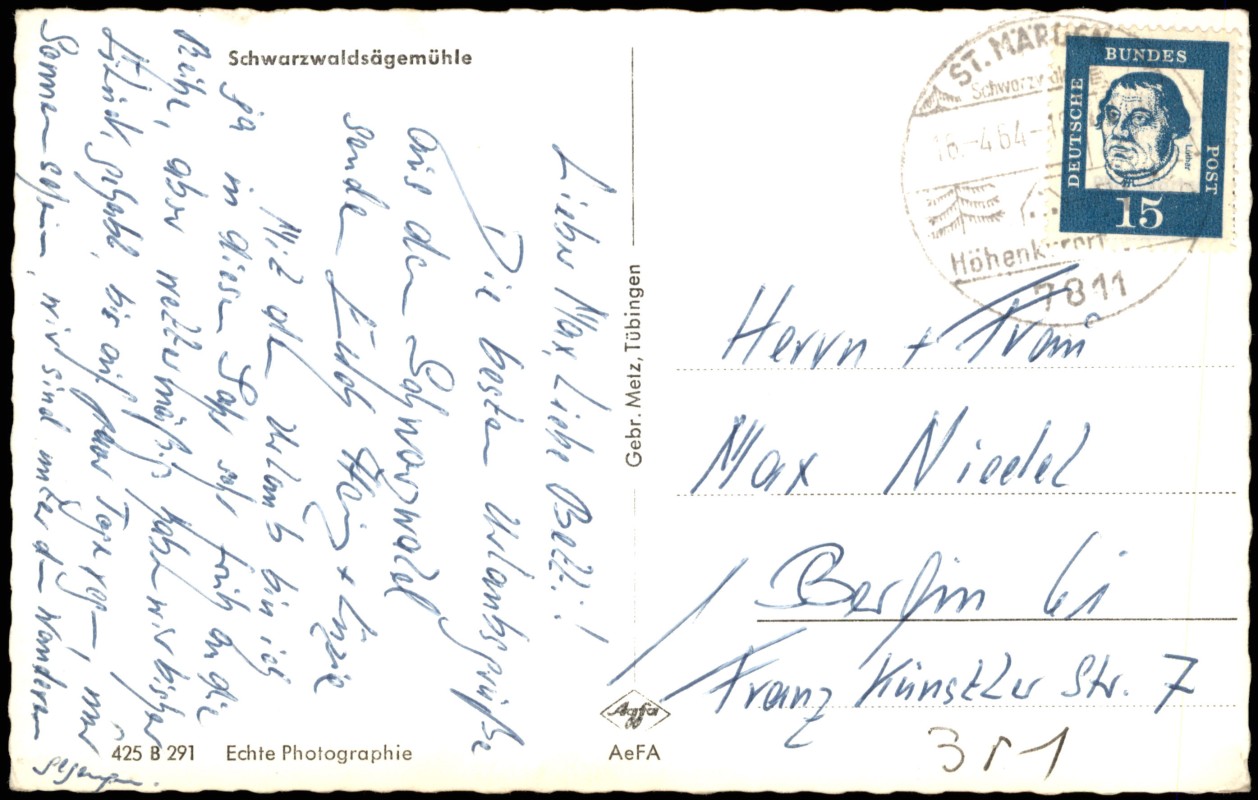 Schwarzwaldsägemühle
Lieber Max, Liebe Betti!
Die besten Urlaubsgrüße
aus dem Schwarzwald
sendet Euch Heinz + Lizzie
Mit dem Urlaub bin ich
ja in diesem Jahr sehr früh an die
Reihe, aber wettermäßig haben wir bisher
Glück gehabt, bis auf paar Tage Regen, nur
Sonnenschein, wir sind unter dem Wandern
gegangen.
425 B 291
Echte Photographie
Gebr. Metz, Tübingen
Agfa
AeFA
ST. MÄRGEN
16.-4.64-
Höhenkurort
7811
DEUTSCHE
BUNDES
POST
Luther
15
Herrn + Frau
Max Niedel
Berlin 61
Franz Künstler Str. 7
351